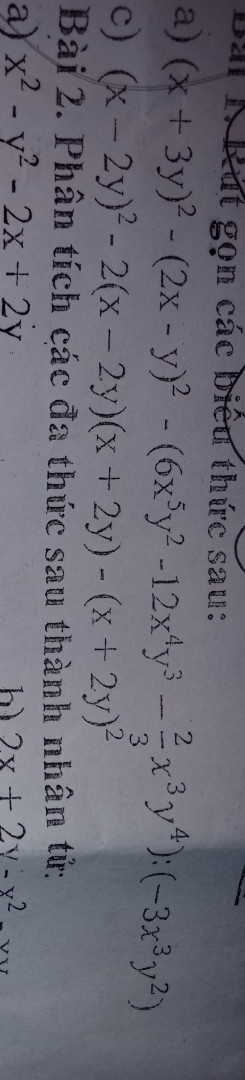 Bài 1. Rút gọn các biểu thức sau:
a) (x + 3y)² - (2x - y)² - (6x⁵y² - 12x⁴y³ - 2/3 x³y⁴):(-3x³y²)
c) (x – 2y)² - 2(x – 2y)(x + 2y) - (x + 2y)²
Bài 2. Phân tích các đa thức sau thành nhân tử:
a) x² - y² - 2x + 2y b) 2x + 2y - x² - xy